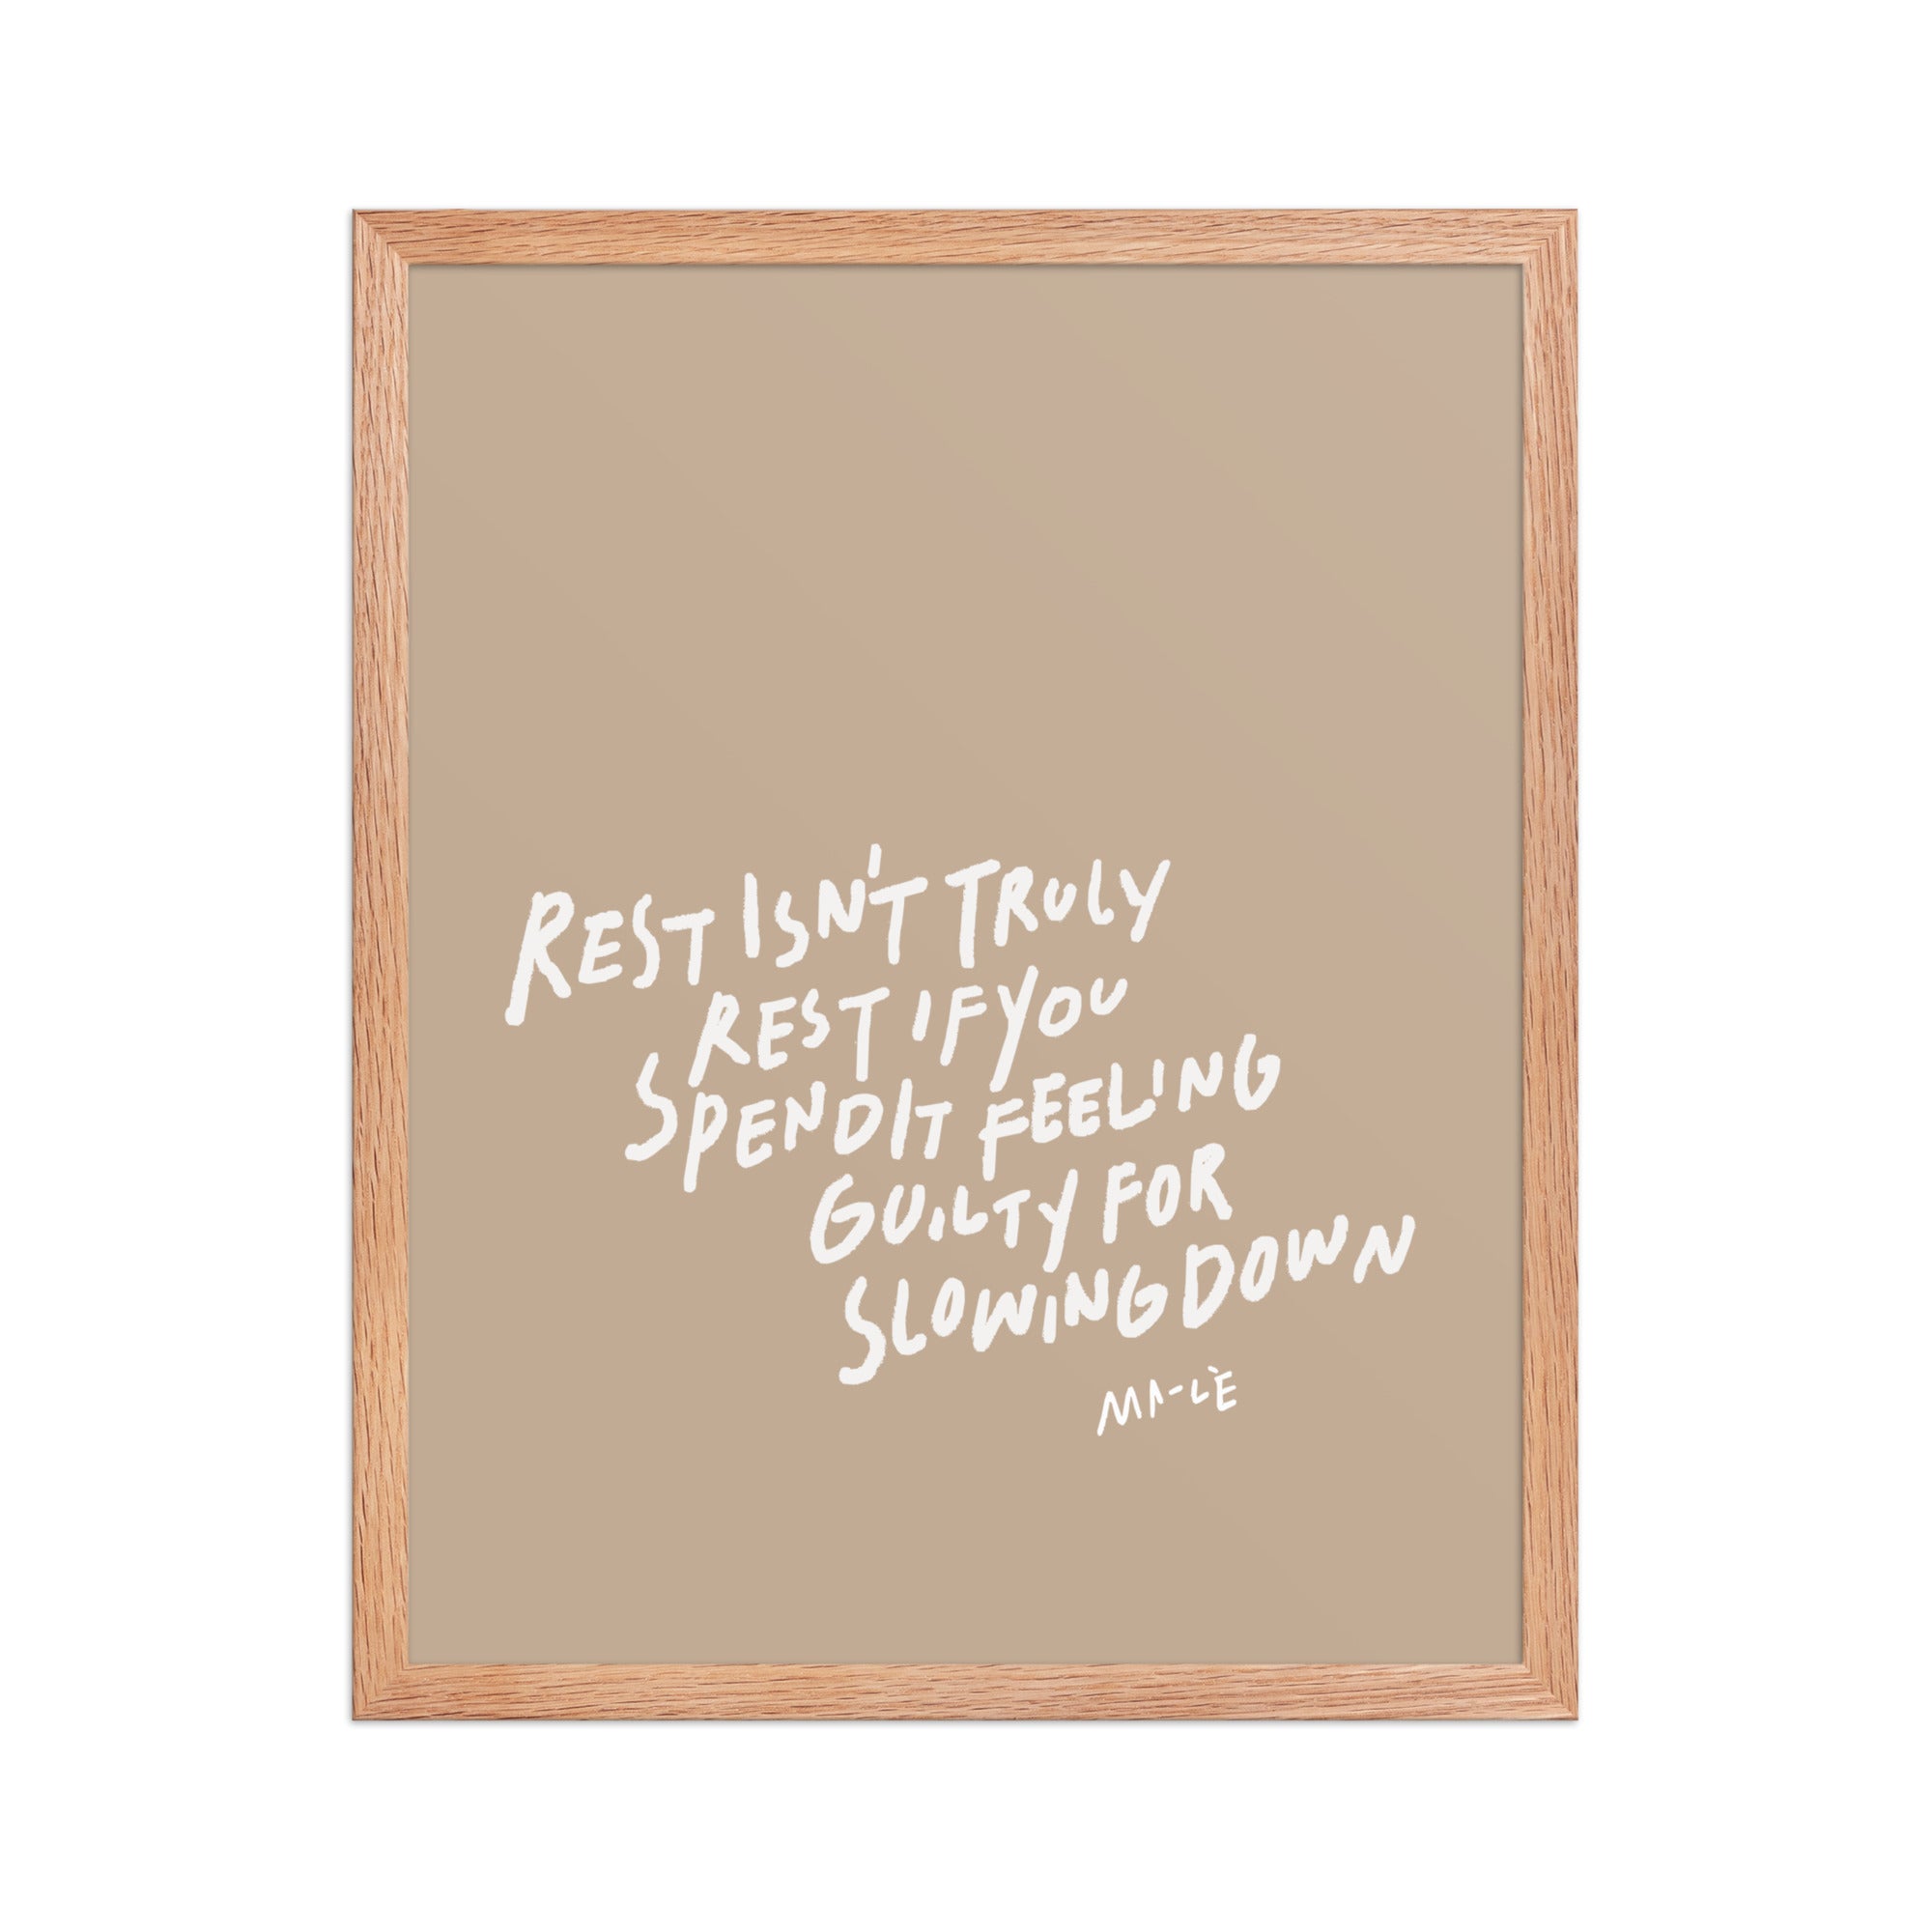 REST ISN'T TRULY
REST IF YOU
SPEND IT FEELING
GUILTY FOR
SLOWING DOWN
MA-LÈ